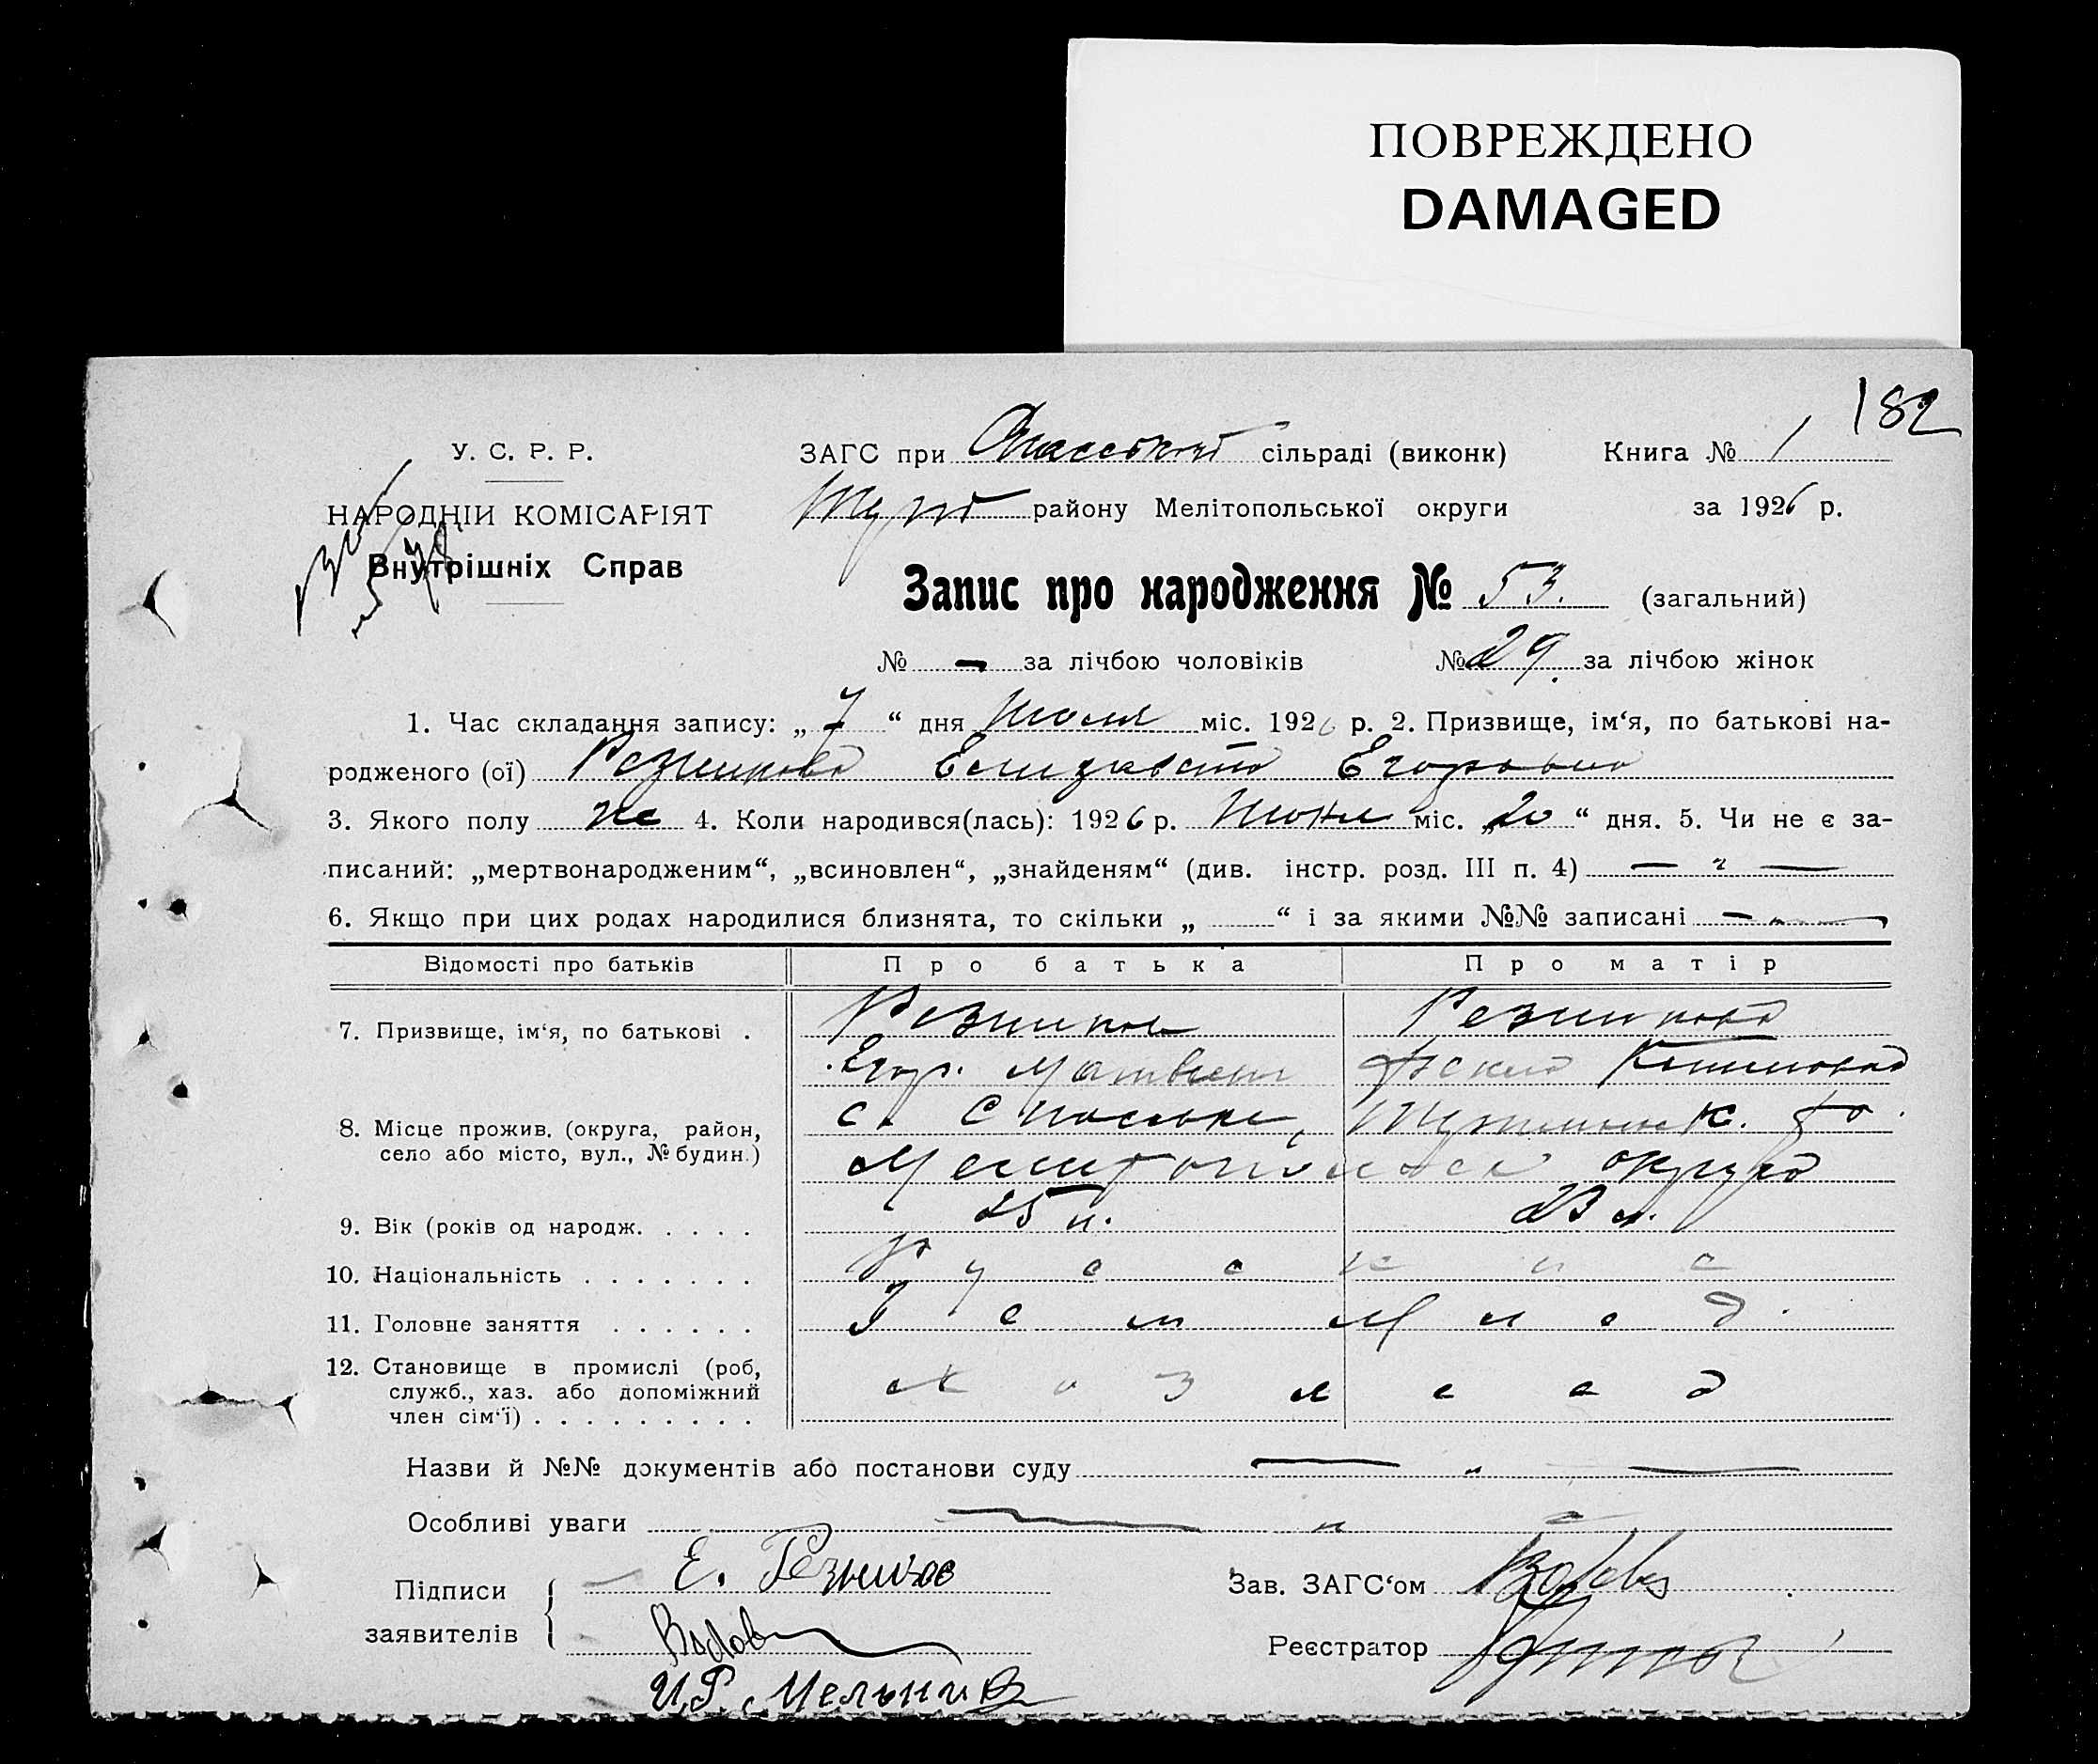 ПОВРЕЖДЕНО
DAMAGED
182
У. С. Р. Р.
НАРОДНІЙ КОМІСАРІЯТ
Внутрішніх Справ
ЗАГС при сільраді (виконк) Книга № 1
району Мелітопольської округи за 1926 р.
Запис про народження № 53. (загальний)
№ — за лічбою чоловіків № 29. за лічбою жінок
1. Час складання запису: „ 7 “ дня Июля міс. 1926 р. 2. Призвище, ім‘я, по батькові на-
родженого (ої) Резникова Елизавета Егоровна
3. Якого полу же 4. Коли народився(лась): 1926 р. Июня міс. „20“ дня. 5. Чи не є за-
писаний: „мертвонародженим“, „всиновлен“, „знайденям“ (див. інстр. розд. III п. 4) — „ —
6. Якщо при цих родах народилися близнята, то скільки „ “ і за якими №№ записані — „ —
Відомості про батьків Про батька Про матір
7. Призвище, ім‘я, по батькові . Резников Резникова
Егор. Матвеев
8. Місце прожив. (округа, район, с. Спаське,
село або місто, вул., № будин.) Мелитопольск округа
9. Вік (років од народж. . . . . 25 л. 23 л.
10. Національність . . . . . . . Русские
11. Головне заняття . . . . . .
12. Становище в промислі (роб,
служб., хаз. або допоміжний
член сім‘ї) . . . . . . . . .
Назви й №№ документів або постанови суду — „ —
Особливі уваги — „
Підписи Е. Резников Зав. ЗАГС‘ом
заявителів Реєстратор
И.Р. Мельник